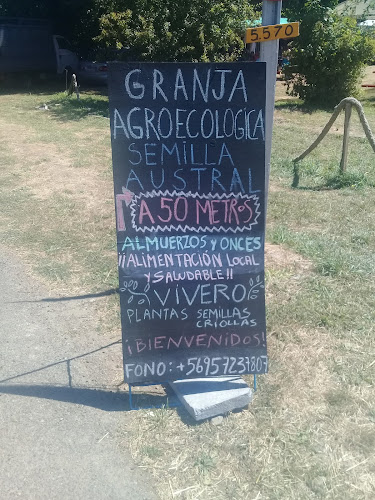 5570
GRANJA
AGROECOLOGICA
SEMILLA
AUSTRAL
A 50 METROS
ALMUERZOS Y ONCES
¡¡ALIMENTACIÓN LOCAL
Y SALUDABLE!!
VIVERO
PLANTAS SEMILLAS
CRIOLLAS
¡BIENVENIDOS!
FONO: +56957237807